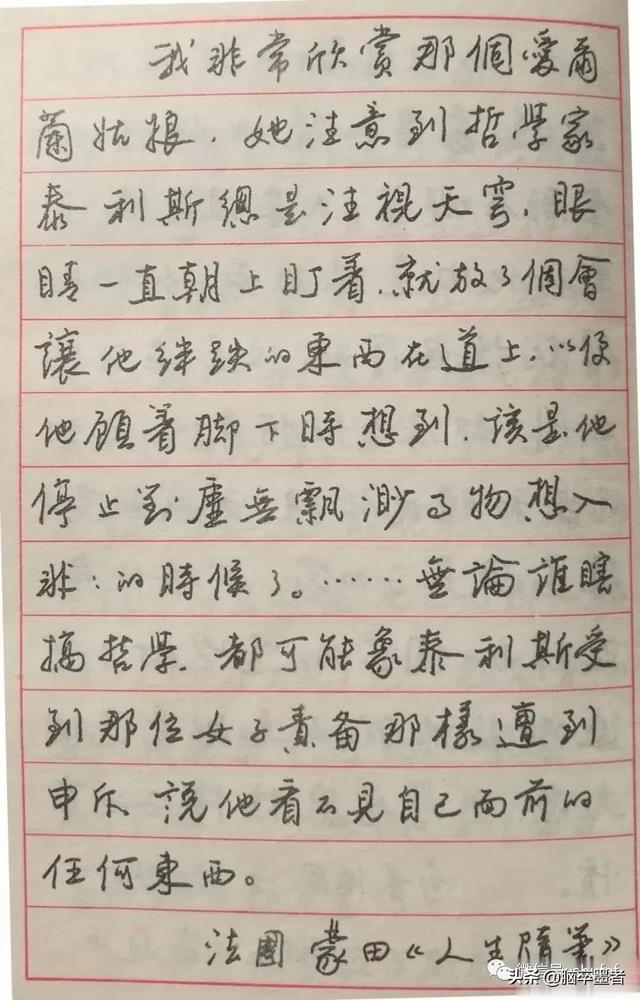 我非常欣賞那個愛爾
蘭姑娘，她注意到哲學家
泰利斯總是注視天穹，眼
睛一直朝上盯着，就放了個會
讓他絆跌的東西在道上，以便
他顧着脚下時想到，該是他
停止對虛無飄渺的物想入
非：的時候了。……無論誰瞎
搞哲學，都可能象泰利斯受
到那位女子責备那樣遭到
申斥，説他看不見自己面前的
任何東西。
法國 蒙田《人生隨筆》
头条 @脑卒墨者